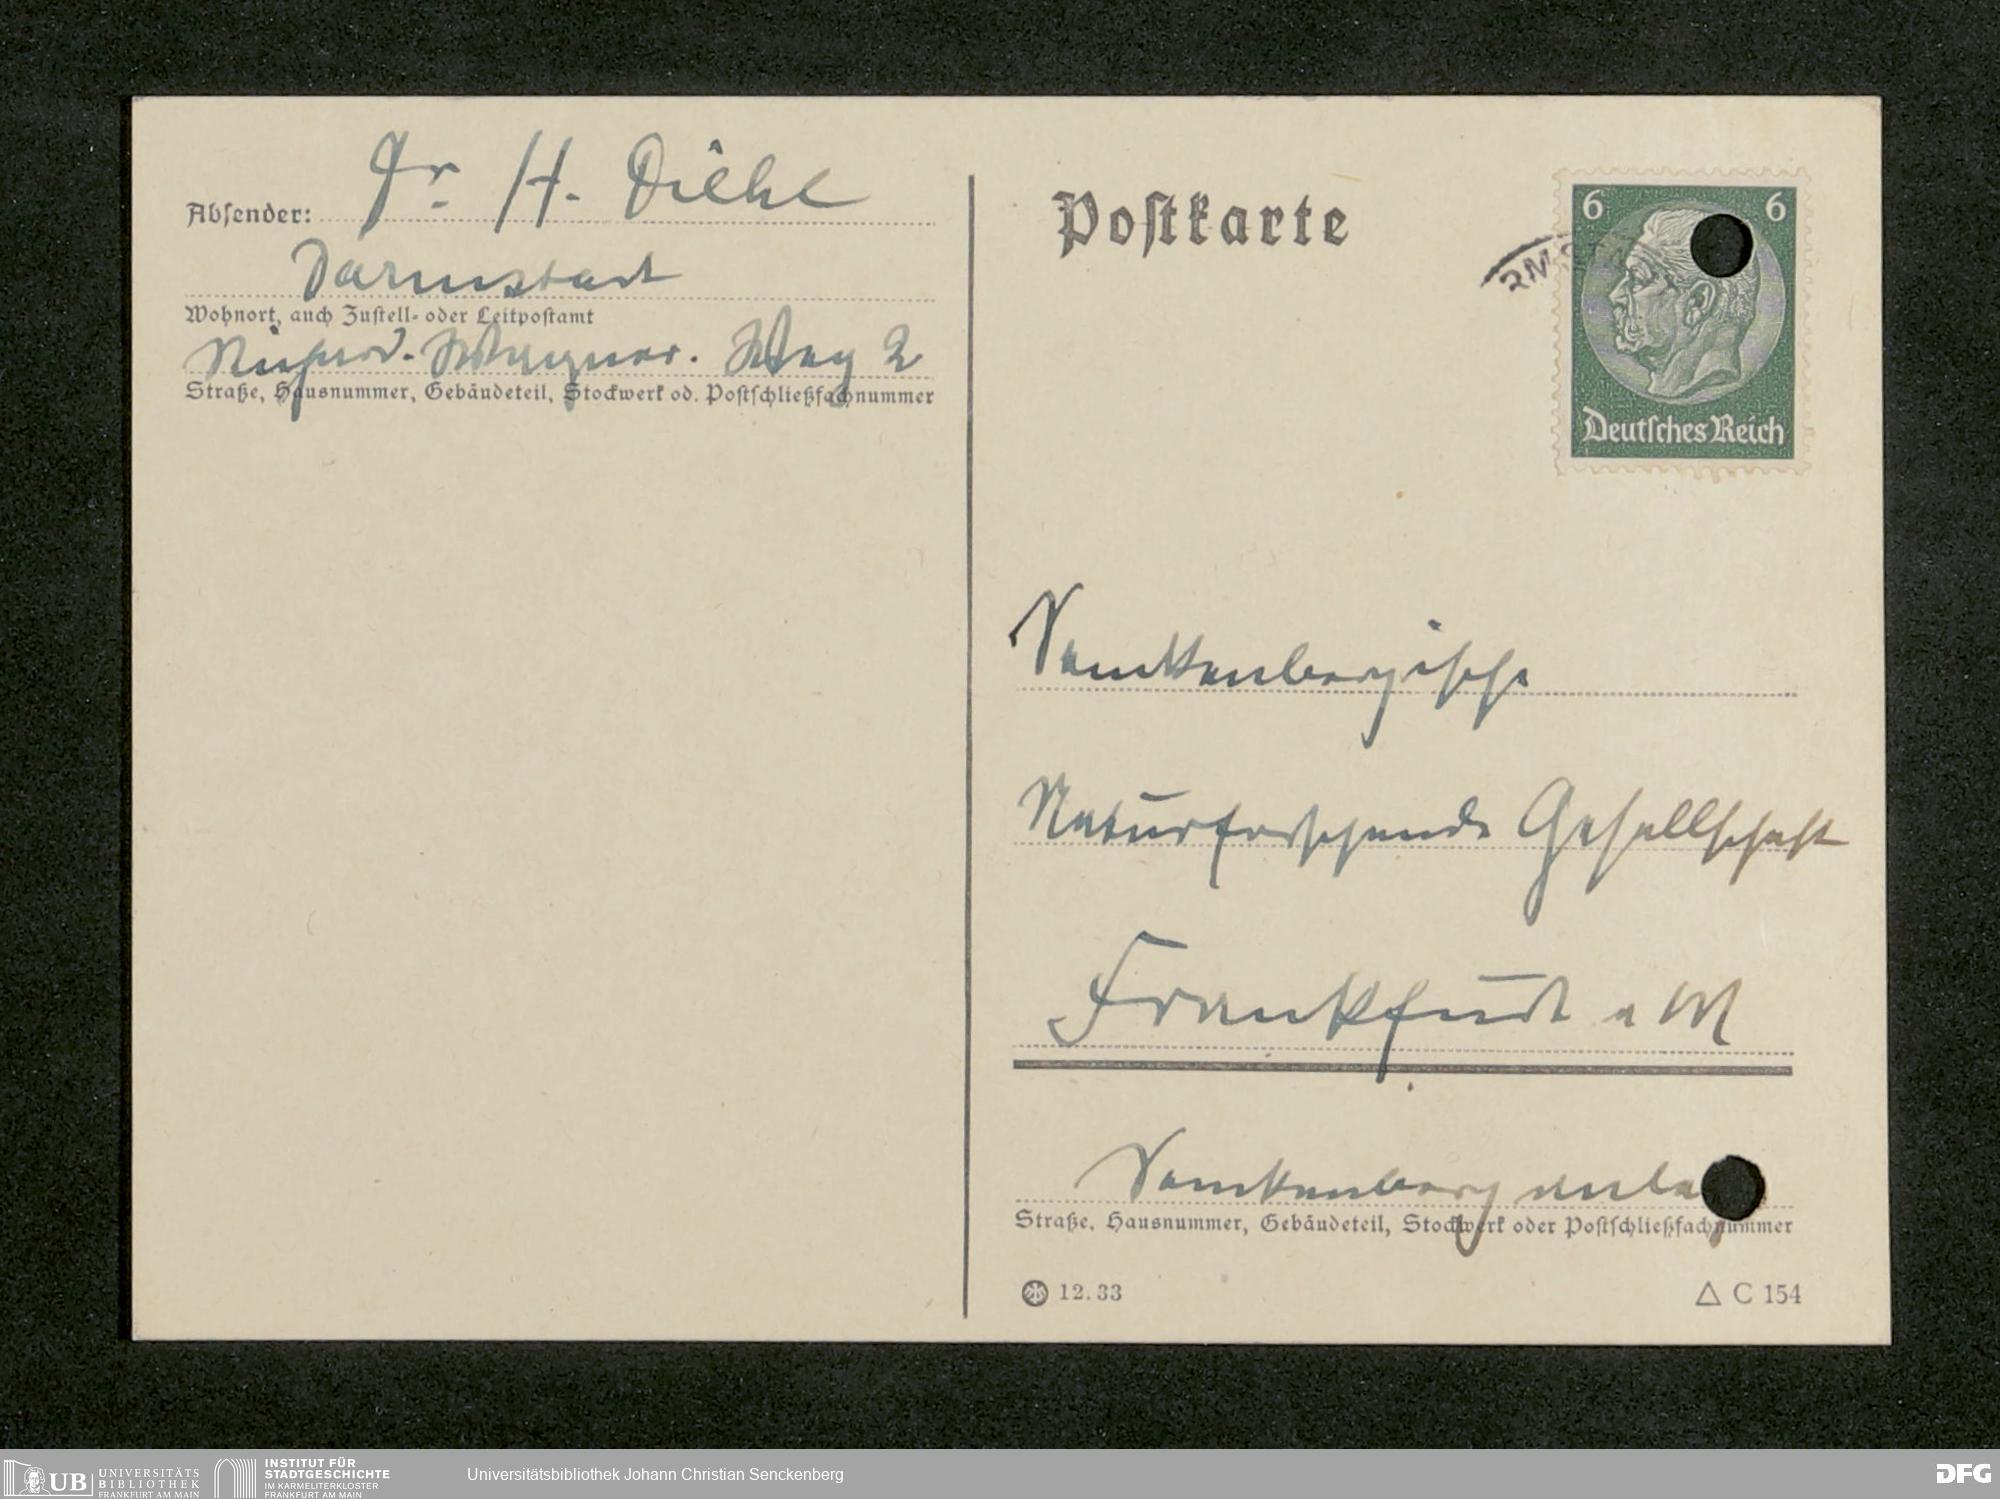 Absender: Dr. H. Diehl
Darmstadt
Wohnort, auch Zustell- oder Leitpostamt
Richard-Wagner-Weg 2
Straße, Hausnummer, Gebäudeteil, Stockwerk od. Postschließfachnummer
Postkarte
6 6
Deutsches Reich
Senckenbergische
Naturforschende Gesellschaft
Frankfurt a M
Senckenberg
Straße, Hausnummer, Gebäudeteil, Stockwerk oder Postschließfachnummer
12. 33
△ C 154
UB UNIVERSITÄTS
BIBLIOTHEK
FRANKFURT AM MAIN
INSTITUT FÜR
STADTGESCHICHTE
IM KARMELITERKLOSTER
FRANKFURT AM MAIN
Universitätsbibliothek Johann Christian Senckenberg
DFG